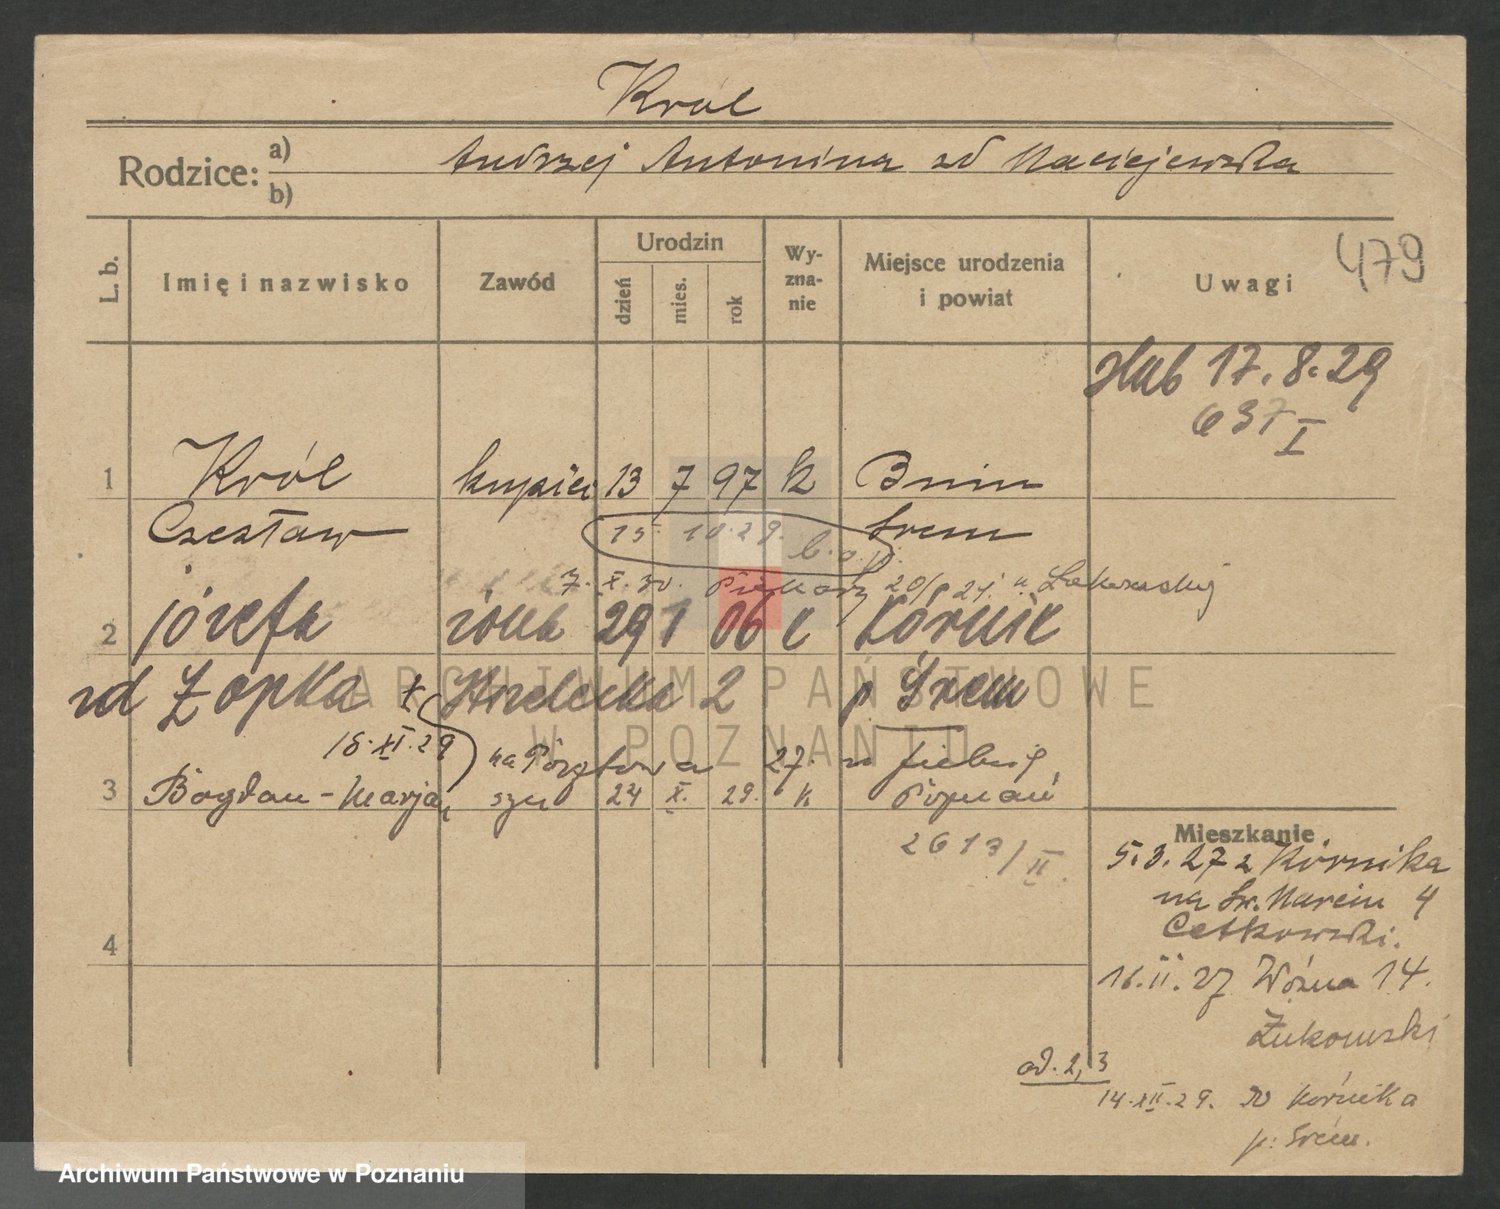 Król
Rodzice: a) Andrzej Antonina zd Maciejewska
b)
L. b. Imię i nazwisko Zawód Urodzin dzień mies. rok Wyznanie Miejsce urodzenia i powiat Uwagi
479
ślub 17.8.29
637 I
1 Król kupiec 13 7 97 k Bnin
Czesław 15 10.29. Śrem
7. X. 30. Piekary 20/
2 józefa żona 29 1 06 k Kórnik
zd Łopka Strzelecka 2 p Śrem
16.XI.29 na 27.
3 Bogdan-Marjan syn 24 X. 29. k Poznań
2613/II.
4
Mieszkanie
5.3.27 z Kórnika
na Św. Marcin 4
Cetkowski.
16.II.27 Woźna 14.
Żukowski
od. 2, 3
14.XII.29. do Kórnika
p. Śrem.
ARCHIWUM PAŃSTWOWE
W POZNANIU
Archiwum Państwowe w Poznaniu